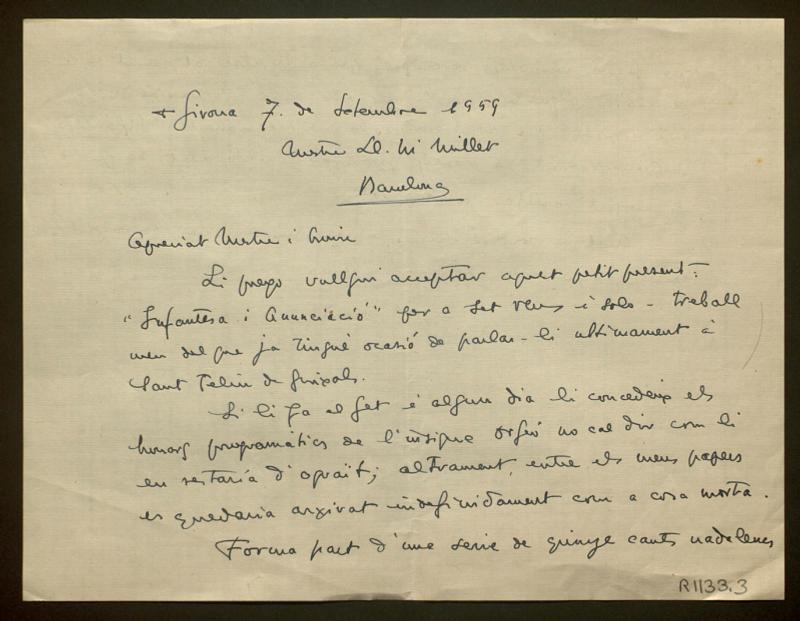 + Girona 7. de Setembre 1959
Mestre Ll. Mª Millet
Barcelona
Apreciat Mestre i
Li prego vullgui acceptar aquet petit present:
"Infantesa i Anunciació" per a set veus i solo - treball
meu del que ja tingué ocasió de parlar-li ultimament à
Sant Feliu de Guixols.
Si li fa el fet é algun dia li concedeix els
honors programàtics de l'insigne Orfeó no cal dir com li
en restaria d'agraït; altrament, entre els meus papers
es quedaria arxivat indefinidament com a cosa morta.
Forma part d'una serie de quinze cants nadalencs
R1133.3